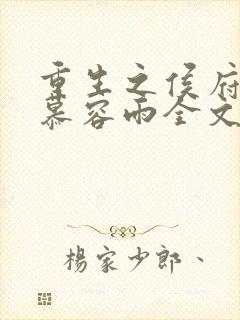 重生之侯府
慕容雨全文
杨家少郎、